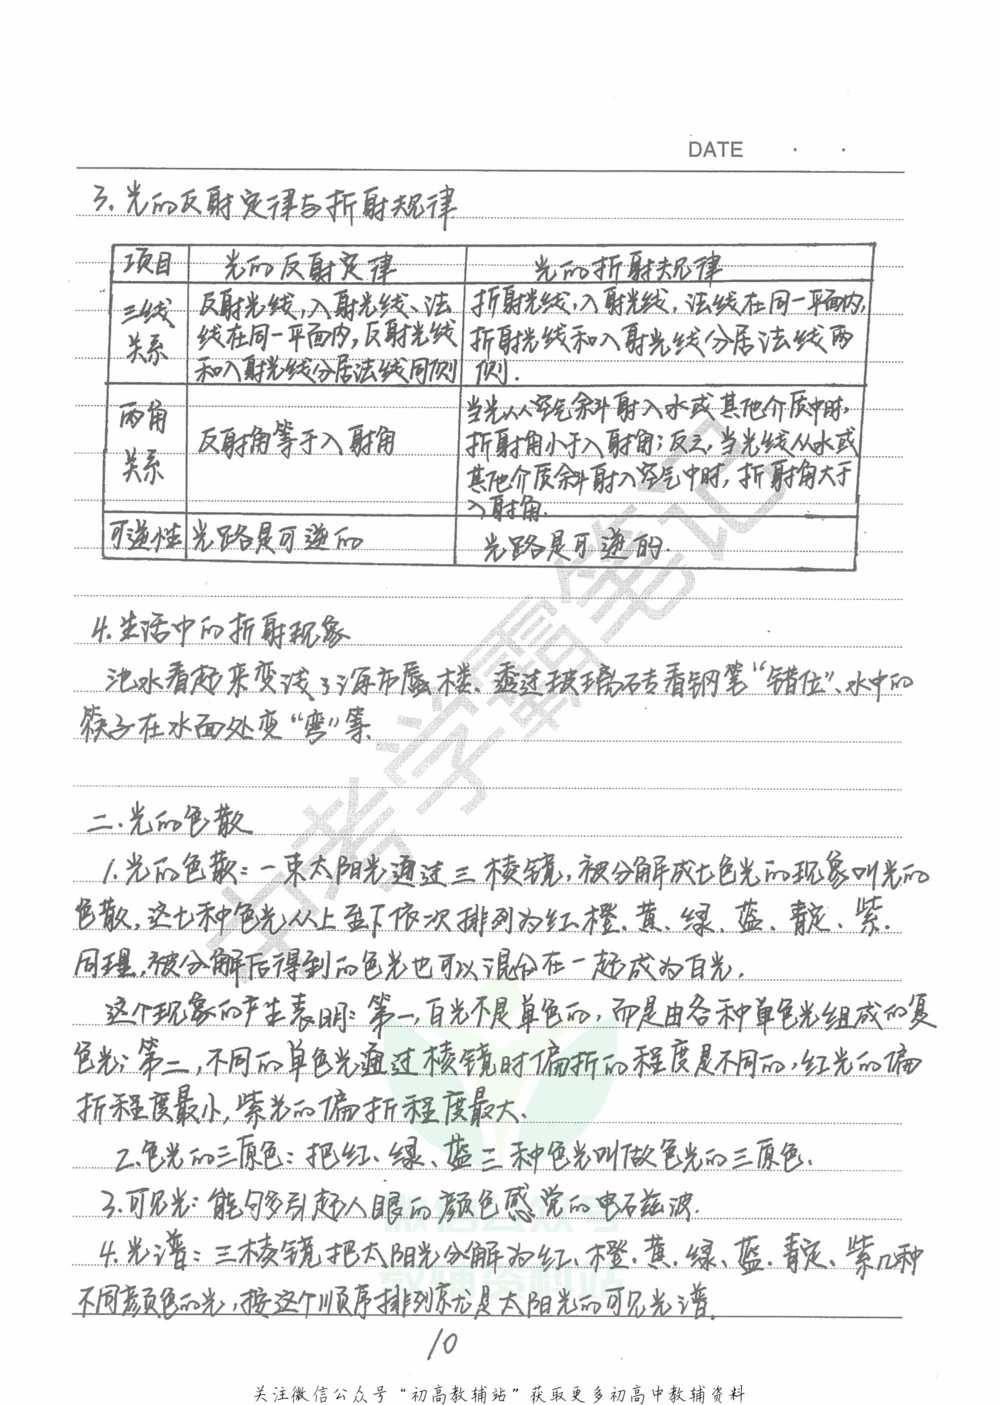 DATE . .
3.光的反射定律与折射规律
项目 光的反射定律 光的折射规律
三线关系
反射光线,入射光线、法
线在同一平面内,反射光线
和入射光线分居法线同侧
折射光线,入射光线,法线在同一平面内,
折射光线和入射光线分居法线两
侧.
两角关系
反射角等于入射角
当光从空气斜射入水或其他介质中时,
折射角小于入射角;反之,当光线从水或
其他介质斜射入空气中时,折射角大于
入射角.
可逆性 光路是可逆的 光路是可逆的.
4.生活中的折射现象
池水看起来变浅了、海市蜃楼、透过玻璃砖看钢笔“错位”、水中的
筷子在水面处变“弯”等.
二.光的色散
1.光的色散:一束太阳光通过三棱镜,被分解成七色光的现象叫光的
色散,这七种色光从上至下依次排列为红、橙、黄、绿、蓝、靛、紫.
同理,被分解后得到的色光也可以混合在一起成为白光.
这个现象的产生表明:第一,白光不是单色的,而是由各种单色光组成的复
色光;第二,不同的单色光通过棱镜时偏折的程度是不同的,红光的偏
折程度最小,紫光的偏折程度最大.
2.色光的三原色:把红、绿、蓝三种色光叫做色光的三原色.
3.可见光:能够引起人眼的颜色感觉的电磁波.
4.光谱:三棱镜把太阳光分解为红、橙、黄、绿、蓝、靛、紫几种
不同颜色的光,按这个顺序排列就是太阳光的可见光谱.
10
关注微信公众号“初高教辅站”获取更多初高中教辅资料
中考学霸笔记
微信公众号
教辅资料站